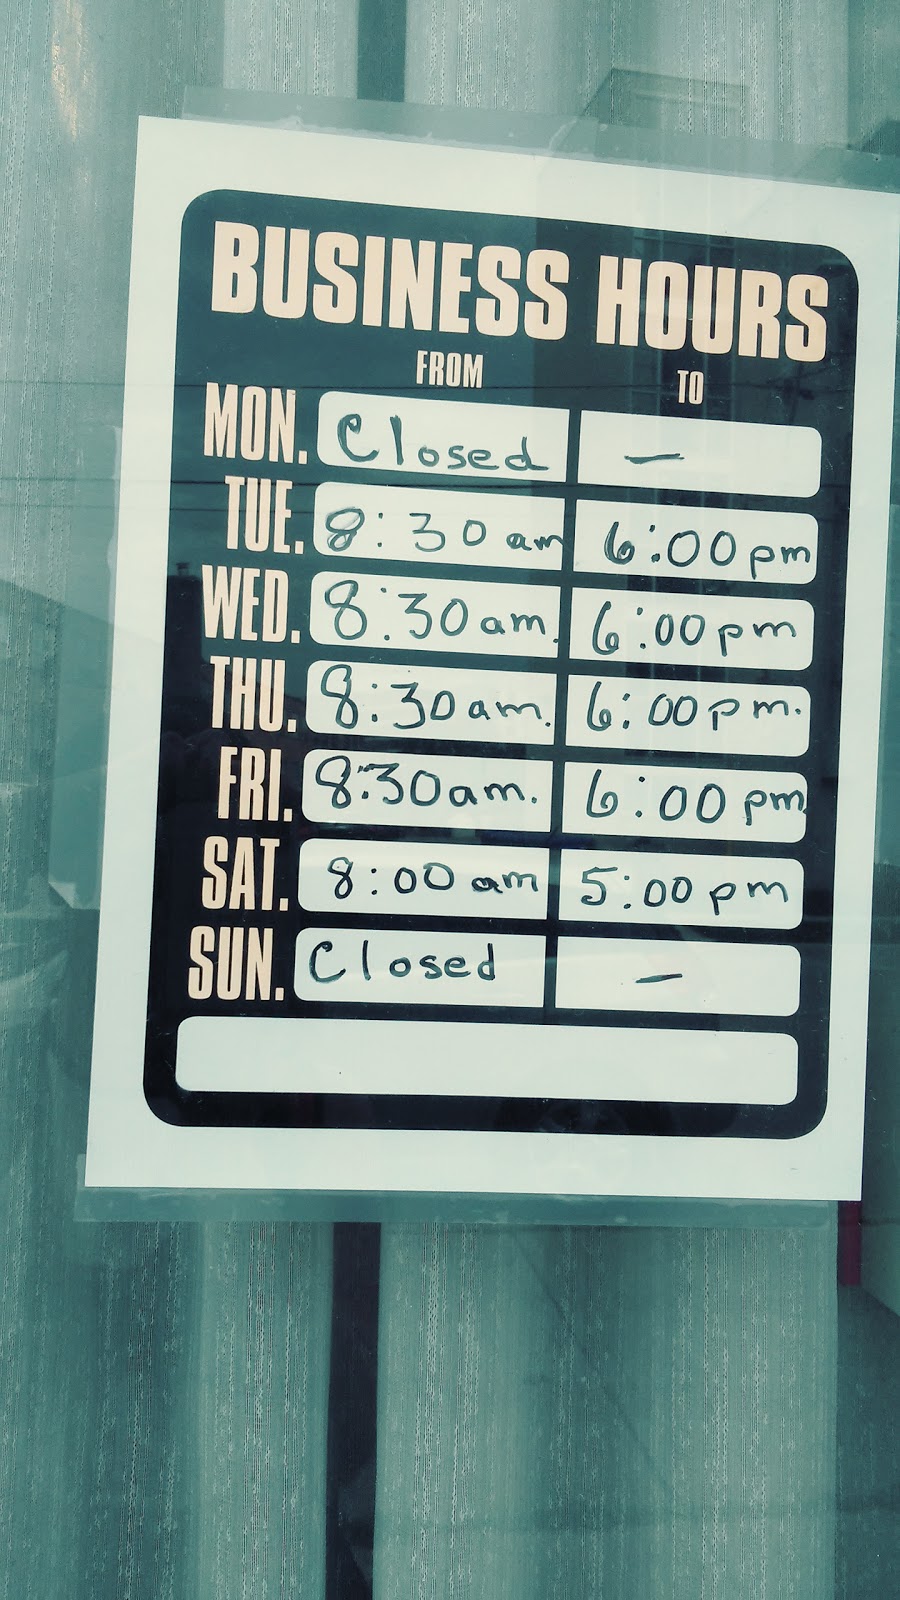 BUSINESS HOURS
FROM TO
MON. Closed —
TUE. 8:30 am 6:00 pm
WED. 8:30 am. 6:00 pm
THU. 8:30 am. 6:00 pm.
FRI. 8:30 am. 6:00 pm
SAT. 8:00 am 5:00 pm
SUN. Closed —